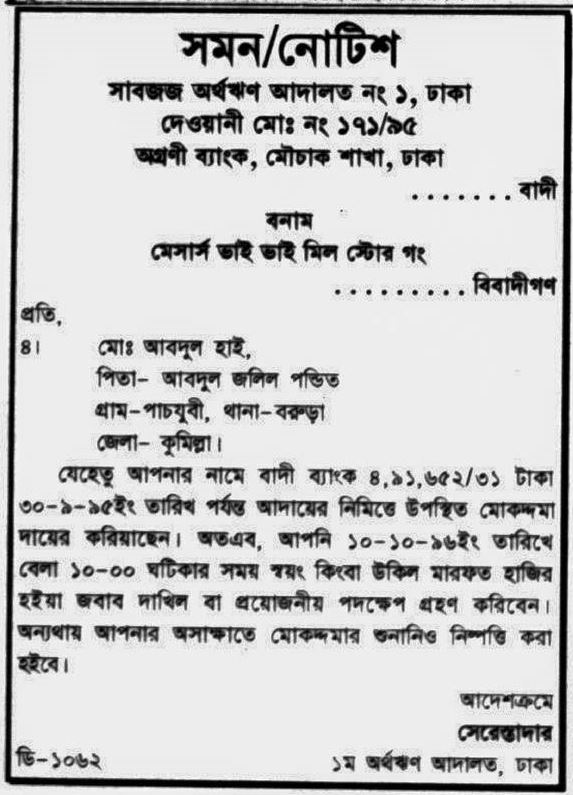 সমন/নোটিশ
সাবজজ অর্থঋণ আদালত নং ১, ঢাকা
দেওয়ানী মোঃ নং ১৭১/৯৫
অগ্রণী ব্যাংক, মৌচাক শাখা, ঢাকা
. . . . . . . বাদী
বনাম
মেসার্স ভাই ভাই মিল স্টোর গং
. . . . . . . . . বিবাদীগণ
প্রতি,
৪। মোঃ আবদুল হাই,
পিতা- আবদুল জলিল পন্ডিত
গ্রাম-পাচযুবী, থানা-বরুড়া
জেলা- কুমিল্লা।
যেহেতু আপনার নামে বাদী ব্যাংক ৪,৯১,৬৫২/৩১ টাকা
৩০-৯-৯৫ইং তারিখ পর্যন্ত আদায়ের নিমিত্তে উপস্থিত মোকদ্দমা
দায়ের করিয়াছেন। অতএব, আপনি ১০-১০-৯৬ইং তারিখে
বেলা ১০-০০ ঘটিকার সময় স্বয়ং কিংবা উকিল মারফত হাজির
হইয়া জবাব দাখিল বা প্রয়োজনীয় পদক্ষেপ গ্রহণ করিবেন।
অন্যথায় আপনার অসাক্ষাতে মোকদ্দমার শুনানিও নিষ্পত্তি করা
হইবে।
আদেশক্রমে
সেরেস্তাদার
ডি-১০৬২ ১ম অর্থঋণ আদালত, ঢাকা